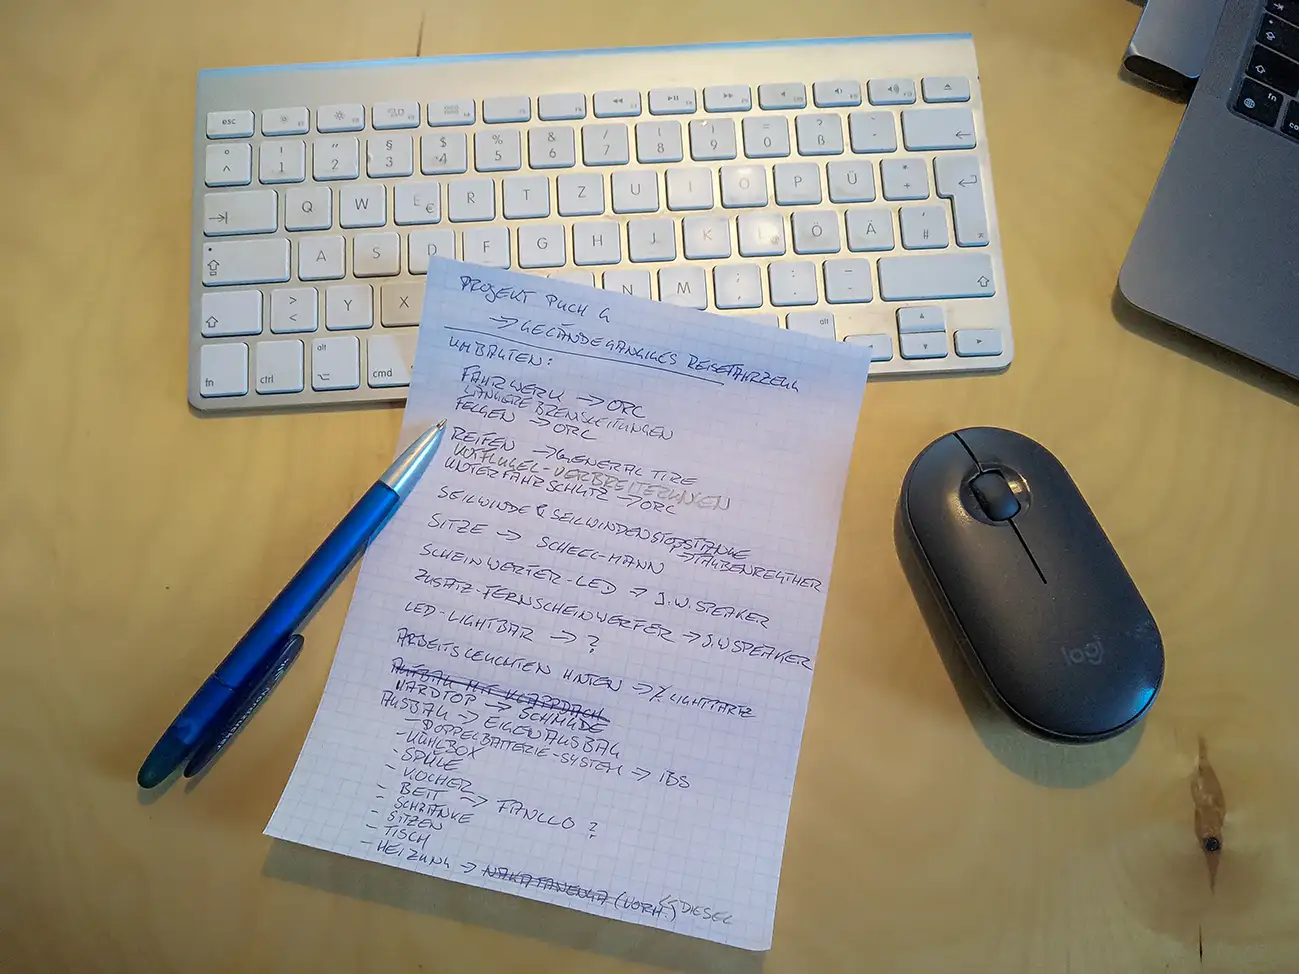 esc
° ^ ! 1 " 2 § 3 $ 4 % 5 & 6 / 7 ( 8 ) 9 = 0 ? ß
Q W E € R T Z U I O P Ü * +
A S D F G H J K L @ Ö Ä ' #
> < Y X N M ; , : . - alt
fn ctrl alt cmd
fn
PROJEKT PUCH G
→ GELÄNDEGÄNGIGES REISEFAHRZEUG
UMBAUTEN:
FAHRWERK → ORC
LÄNGERE BREMSLEITUNGEN
FELGEN → ORC
REIFEN → GENERAL TIRE
KOTFLÜGEL-VERBREITERUNGEN
UNTERFAHRSCHUTZ → ORC
SEILWINDE & SEILWINDENSTOSSTANGE
→ TAUBENREUTHER
SITZE → SCHEEL-MANN
SCHEINWERFER-LED → J.W. SPEAKER
ZUSATZ-FERNSCHEINWERFER → J.W SPEAKER
LED-LIGHTBAR → ?
ARBEITSLEUCHTEN HINTEN → LIGHTPARTZ
AUFBAU MIT KLAPPDACH
HARDTOP → SCHMUDE
AUSBAU → EIGENAUSBAU
- DOPPELBATTERIE-SYSTEM → IBS
- KÜHLBOX
- SPÜLE
- KOCHER
- BETT → FANELLO ?
- SCHRÄNKE
- SITZEN
- TISCH
- HEIZUNG → (VORH.) DIESEL
logi